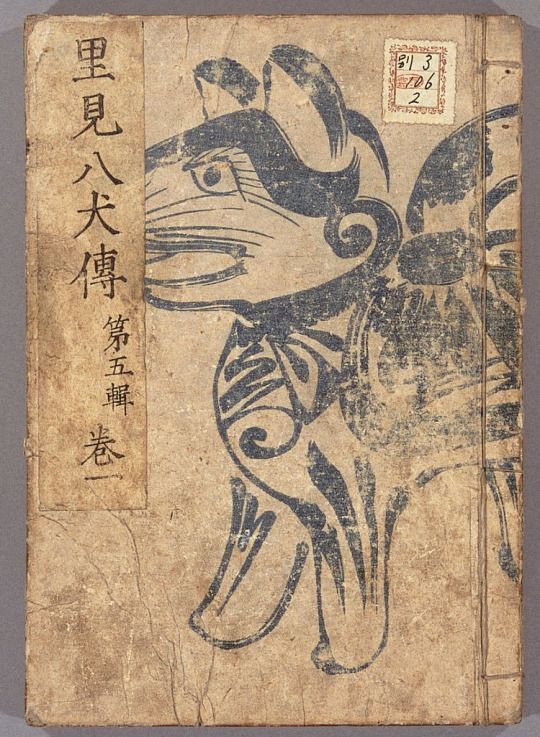 里見八犬傳 第五輯 巻一
別 3
106
2